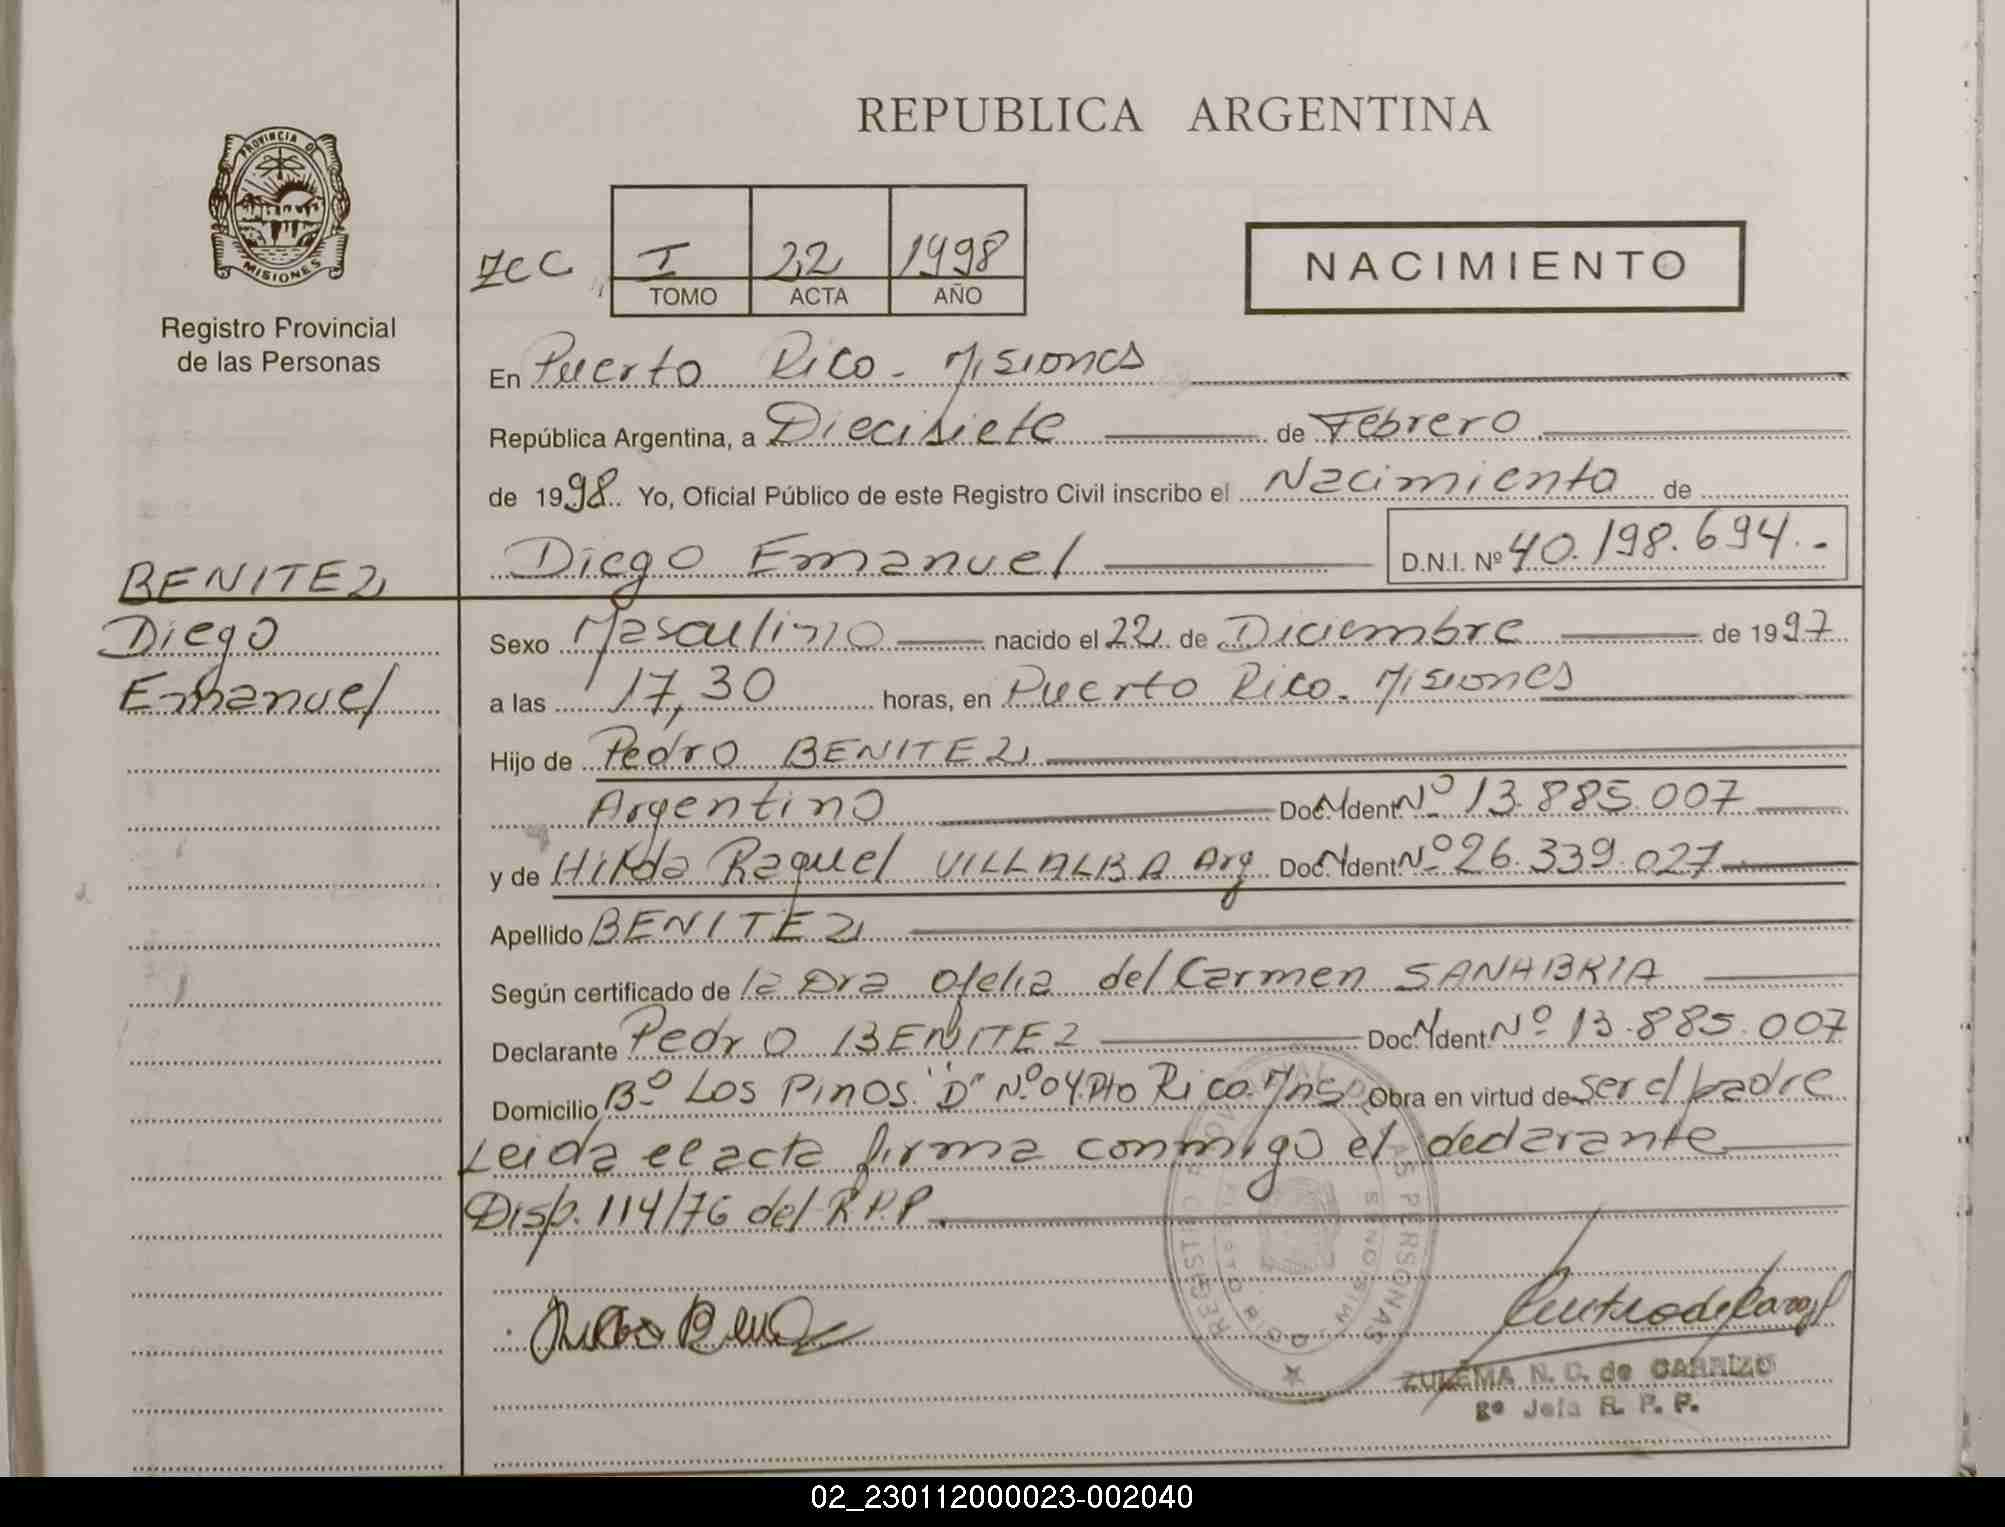 REPUBLICA ARGENTINA
PROVINCIA DE
MISIONES
Registro Provincial
de las Personas
I 22 1998
TOMO ACTA AÑO
NACIMIENTO
En Puerto Rico - Misiones
República Argentina, a Diecisiete de Febrero
de 1998. Yo, Oficial Público de este Registro Civil inscribo el Nacimiento de
Diego Emanuel D.N.I. Nº 40.198.694.-
BENITEZ
Diego
Emanuel
Sexo Masculino nacido el 22 de Diciembre de 1997
a las 17,30 horas, en Puerto Rico - Misiones
Hijo de Pedro BENITEZ
Argentino Doc. Ident. Nº 13.885.007
y de Hilda Raquel VILLALBA Arg Doc. Ident. Nº 26.339.027
Apellido BENITEZ
Según certificado de la Dra Ofelia del Carmen SANABRIA
Declarante Pedro BENITEZ Doc. Ident. Nº 13.885.007
Domicilio Bº Los Pinos "D" Nº 04 Pto Rico. Mns Obra en virtud de ser el padre
Leida el acta firma conmigo el declarante
Disp. 114/76 del R.P.P.
REGISTRO PROVINCIAL DE LAS PERSONAS
PUERTO RICO - MISIONES
ZULEMA N. C. de CARRIZO
Jefa R. P. P.
02_230112000023-002040